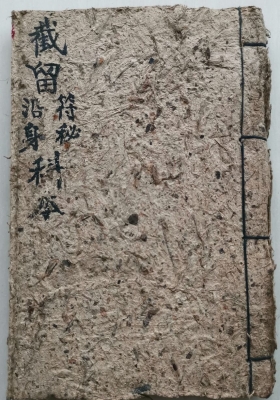 截留
符秘
沿身
科本